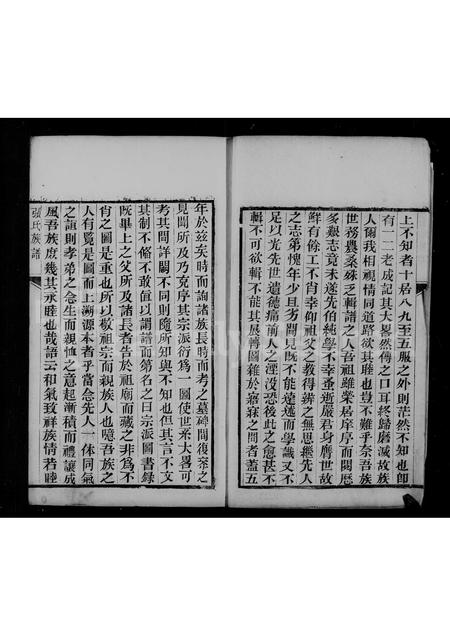 上不知者十居八九至五服之外則茫然不知也卽
有一二老成記其大畧然傳之口耳終歸磨滅故族
人倆我相視情同道路欲其睦也豈不難乎奈吾族
世務農桑殊乏輯譜之人吾祖雖業居庠序而閱歷
多艱志竟未遂先伯純學不幸蚤逝嚴君身膺世故
鮮有餘工不肖幸仰祖父之教得辨之無思繼先人
之志第愧年少且劣聞見旣不能遠述而學識又不
足以光先世遺德痛前人之湮沒恐後此之愈甚不
輯不可欲輯不能其展轉圖維於寤寐之間者蓋五
年於茲矣時而詢諸族長時而考之墓碑閒復參之
見聞所及乃克序其宗派衍爲一圖使世系大畧可
考其間詳闕不同則隨所知與不知也但其言不文
其制不偹不敢值以謂譜而第名之曰宗派圖書錄
旣畢上之父所及諸長者告於祖廟而藏之非爲不
肖之圖是重也所以敬祖宗而親族人也噫吾族之
人有覧是圖而上溯源本者乎當念先人一体同氣
之誼則孝弟之念生而親恤之意起漸積而禮讓成
風吾族庶幾其永睦也哉語云和氣致祥族情若睦
張氏族譜